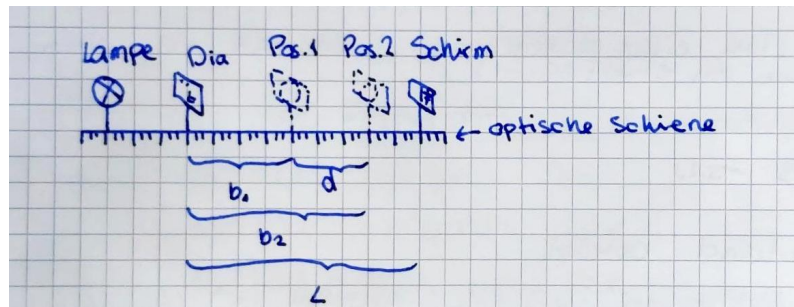 Lampe Dia Pos.1 Pos.2 Schirm
← optische Schiene
b₁ d
b₂
L